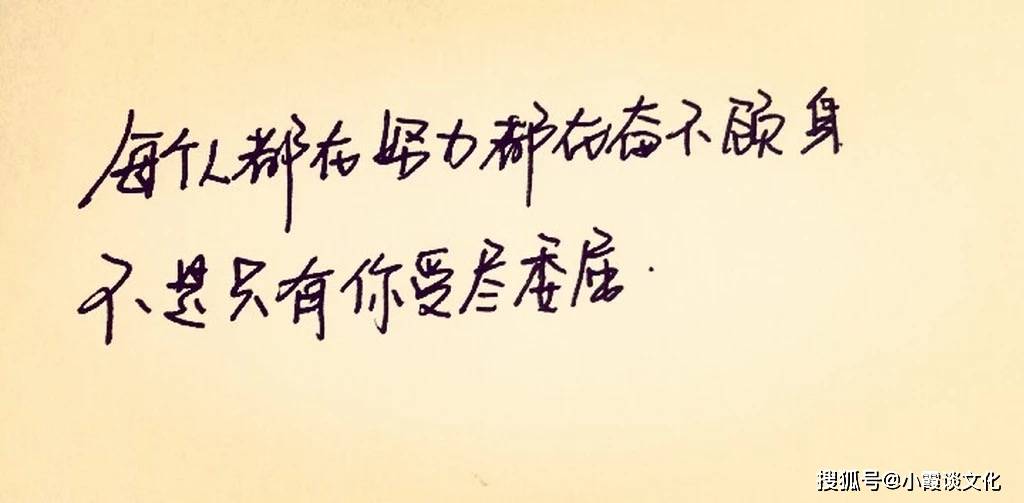 每个人都在努力都在奋不顾身
不是只有你受尽委屈.
搜狐号@小霞谈文化